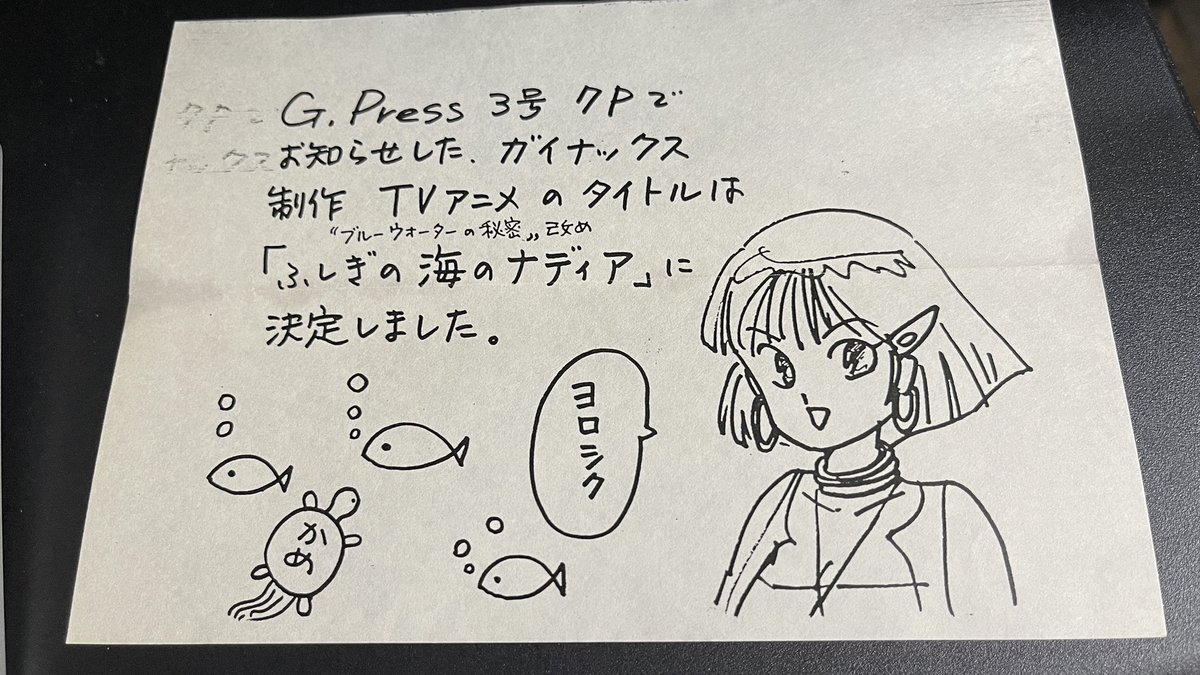 G.Press 3号 7Pで
お知らせした、ガイナックス
制作 TVアニメ の タイトルは
“ブルーウォーターの秘密„ 改め
「ふしぎの海のナディア」に
決定しました。
ヨロシク
かめ